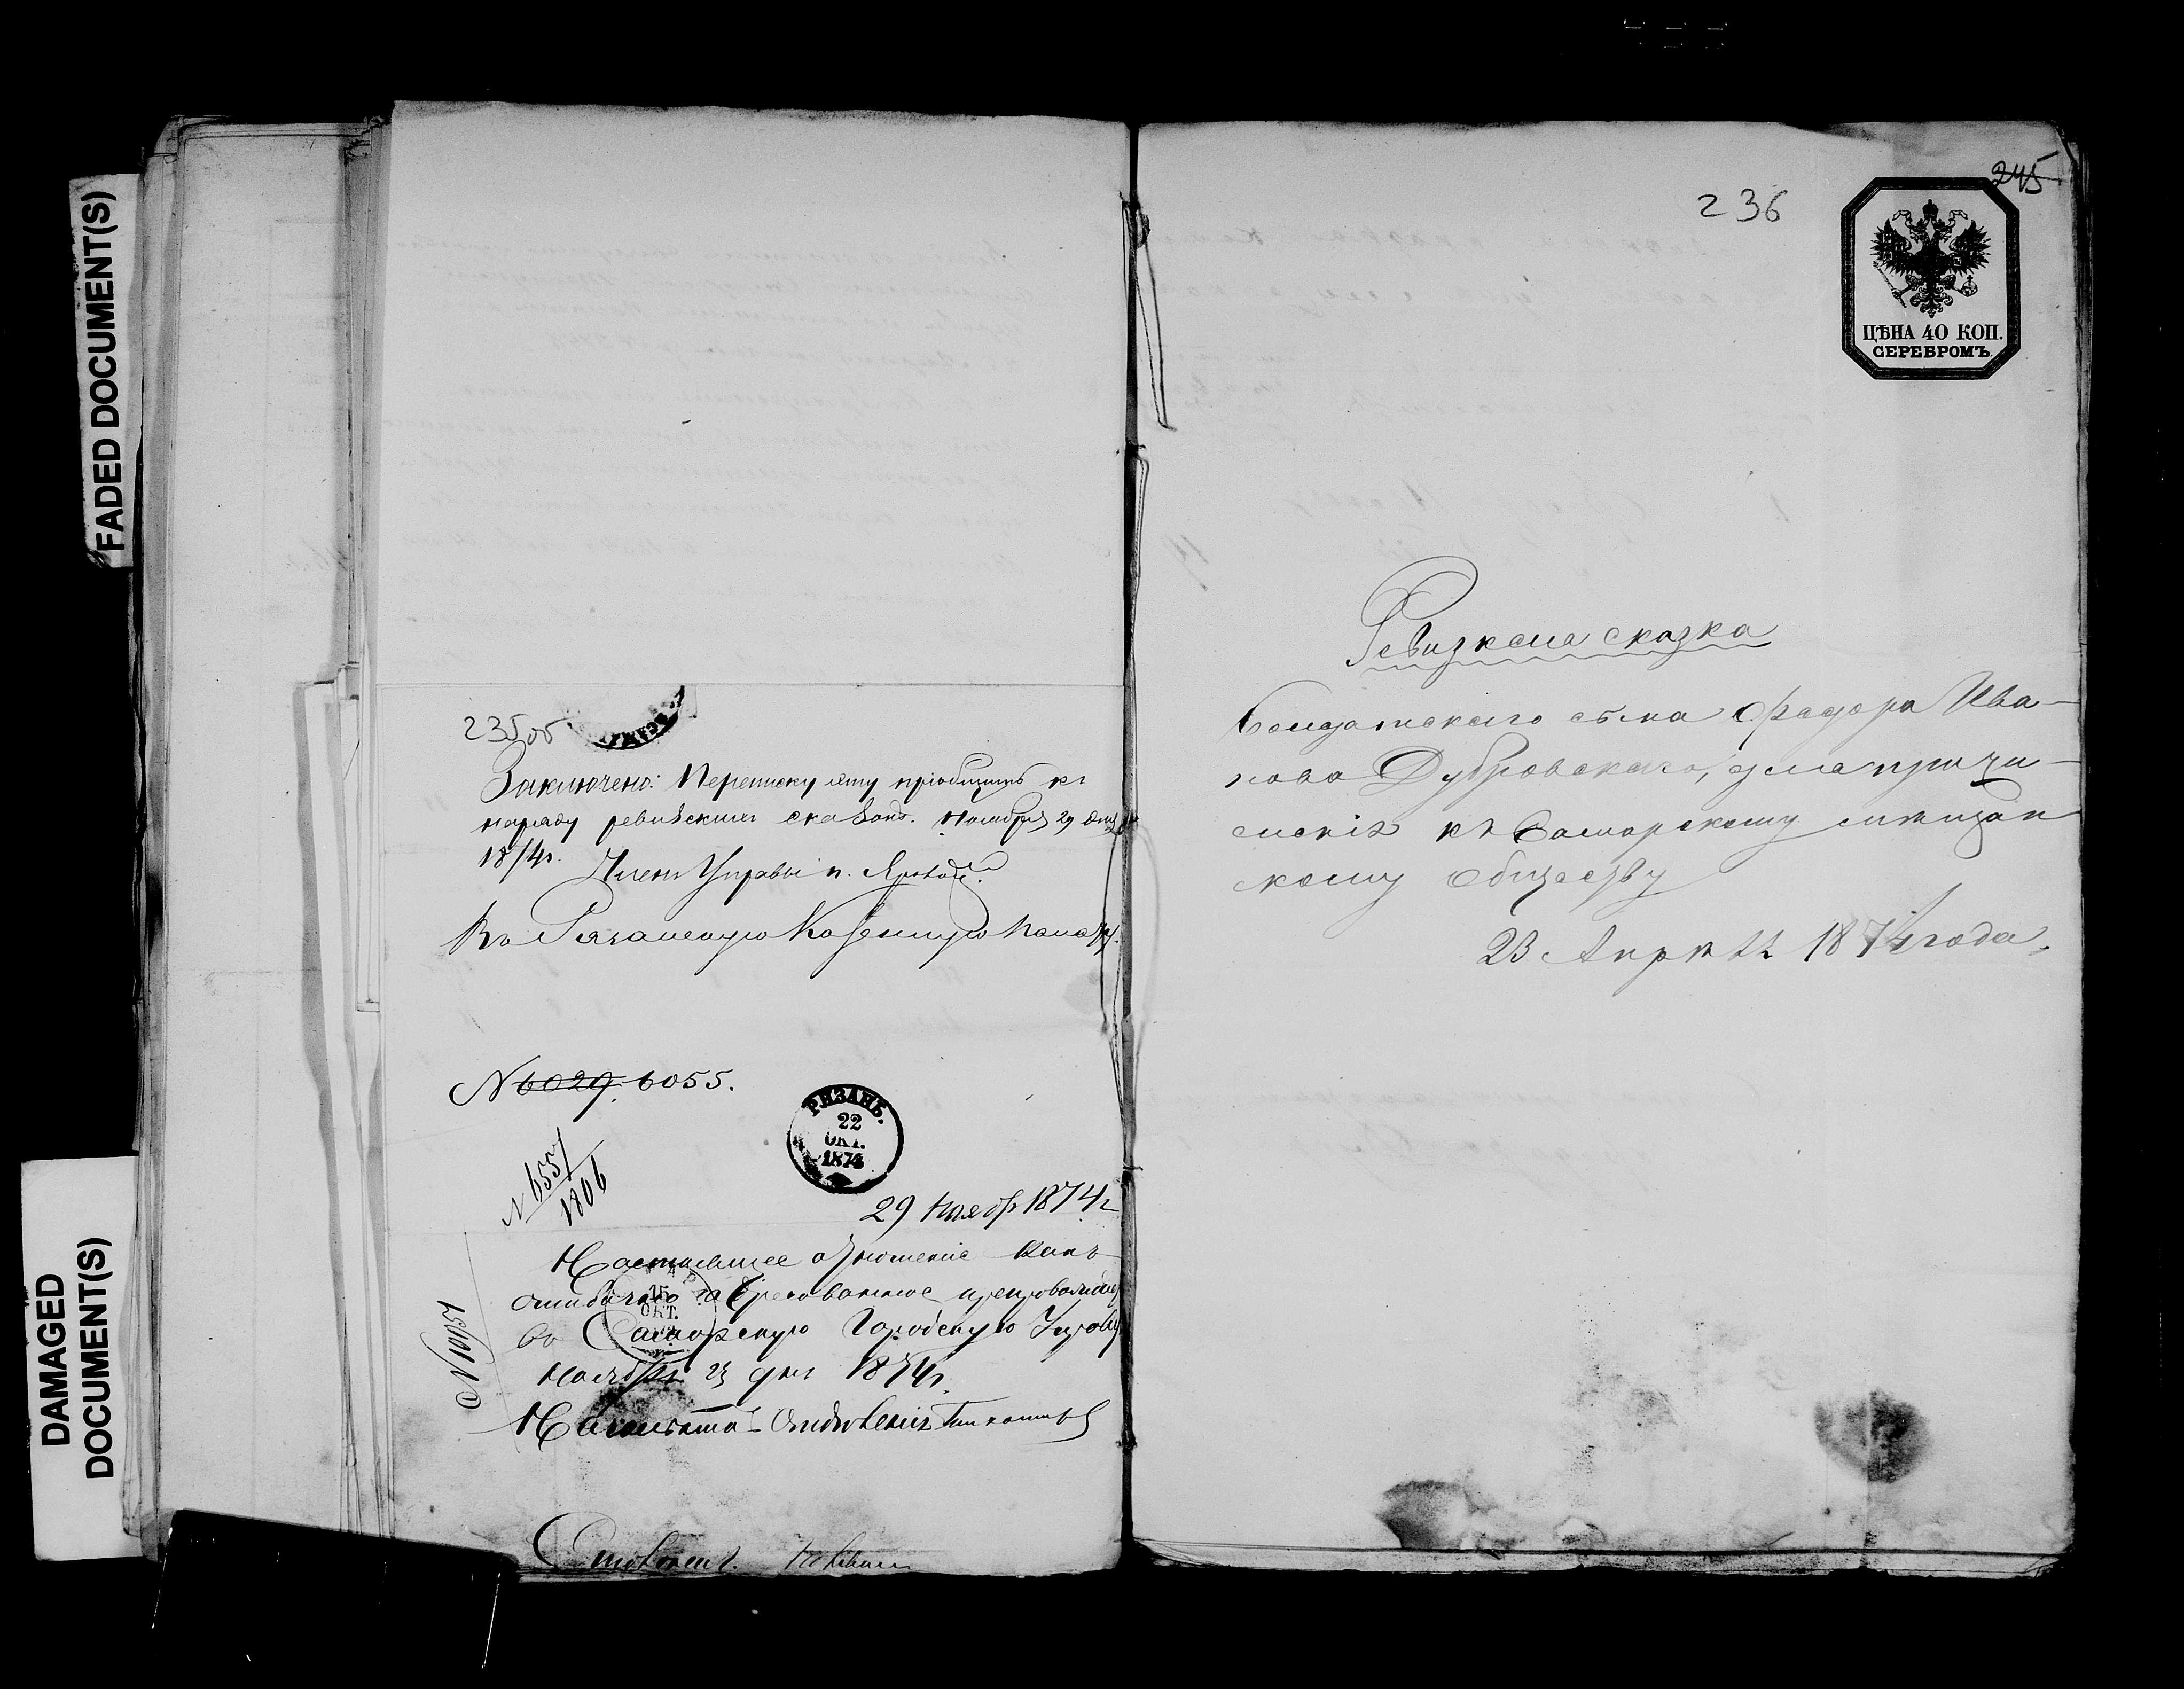 FADED DOCUMENT(S)
DAMAGED
DOCUMENT(S)
235об
Заключено: Переписку эту пріобщить къ
наряду ревизскихъ сказокъ. Ноября 29 дня
1874г. Членъ Управы п.
Въ Рязанскую Казенную Палату.
N 6029. 6055.
РЯЗАНЬ.
22
ОКТ.
1874
N 6557
1806
29 Ноябр 1874г
Настоящее отношение какъ
ошибочно адресованное препровождается
въ Самарскую Городскую Управу
Ноября 23 дня 1874г.
N 10957
15
ОКТ.
Начальникъ Отдѣленія
245
236
ЦѢНА 40 КОП.
СЕРЕБРОМЪ.
Ревизская сказка
Солдатскаго сына Федора Ива-
нова Дубровскаго, для причи-
сленія къ Самарскому мѣщан
скому обществу
23 Апрѣля 1874 года.